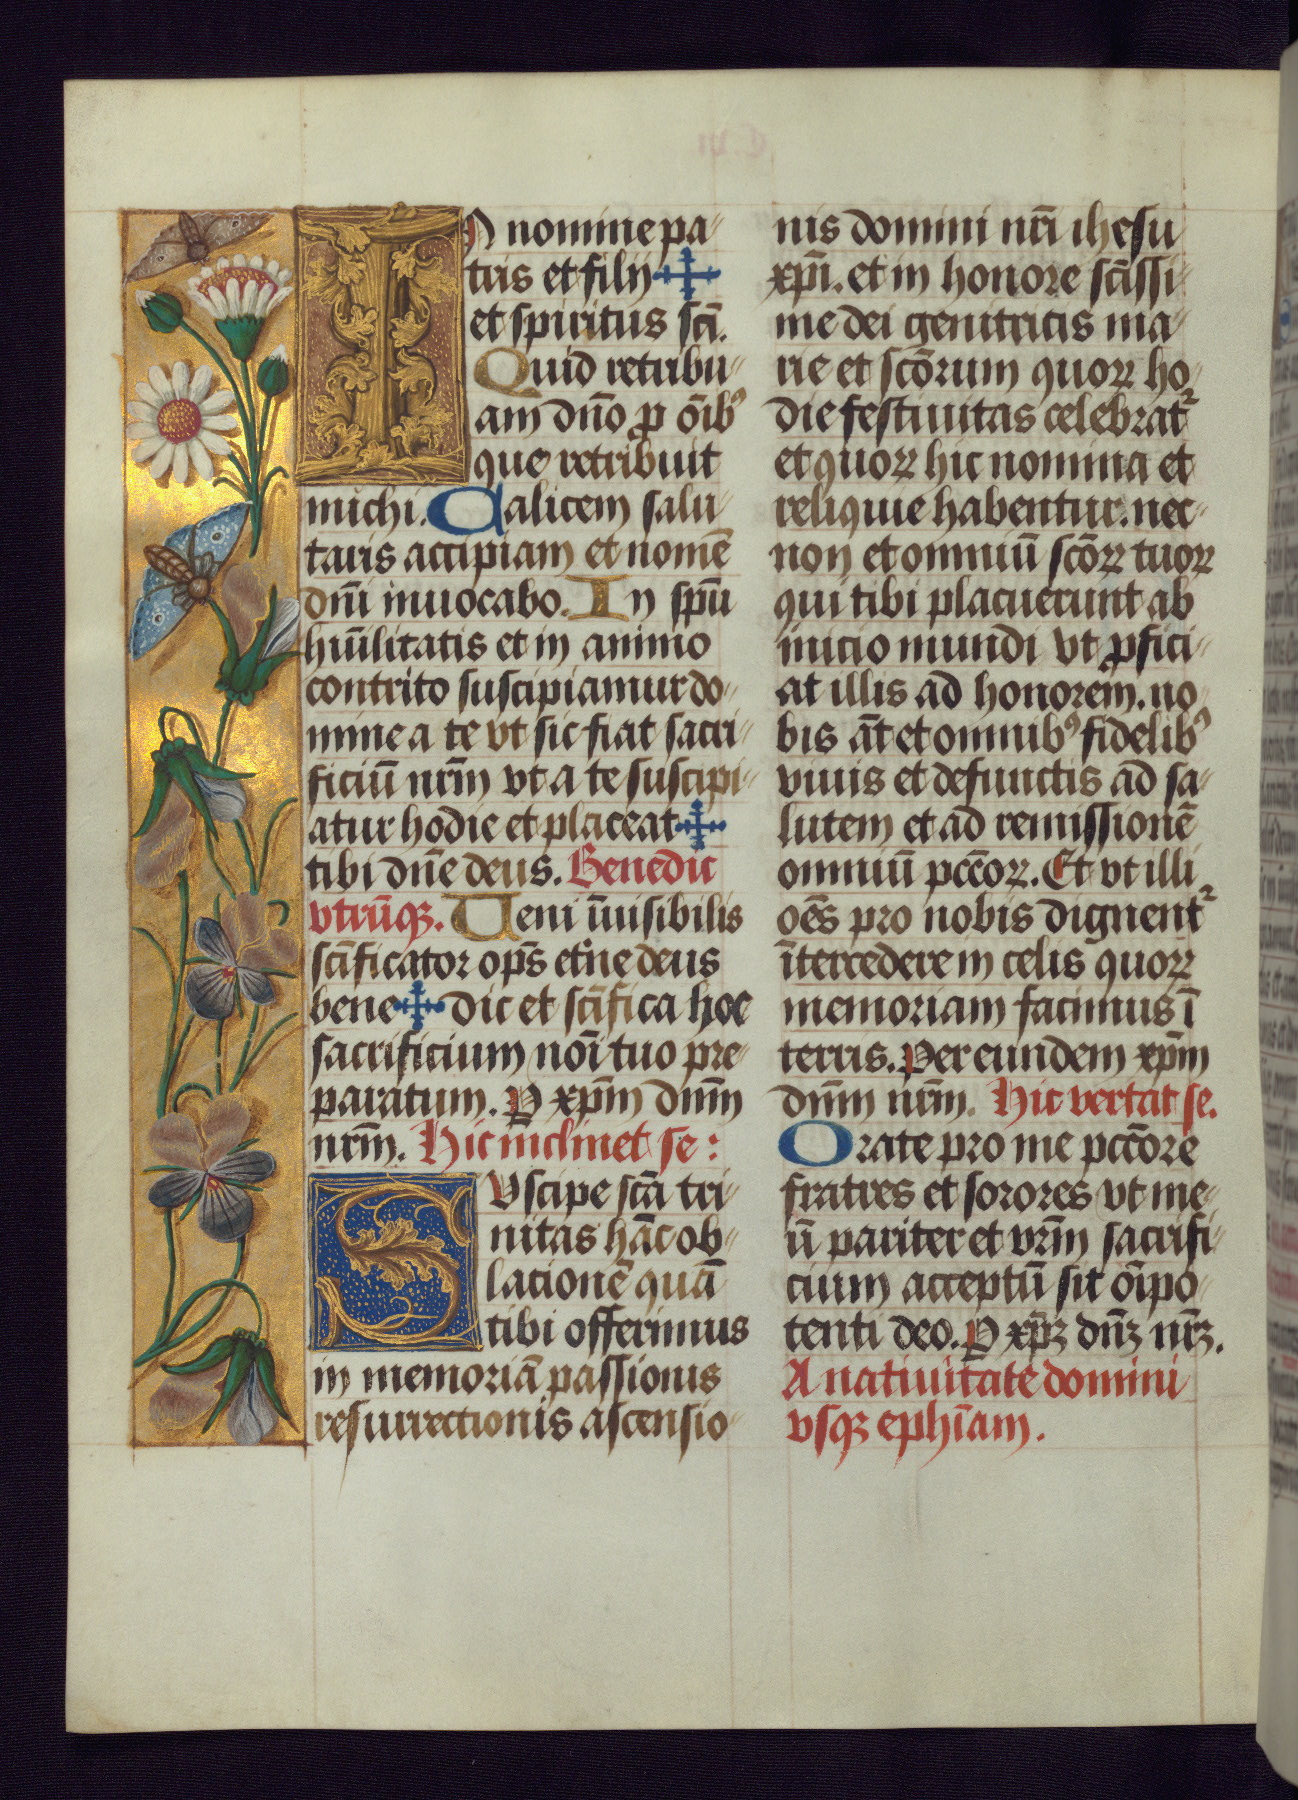 IN nomine pa〃
tris et filij ✠
et spiritus scī.
Quid retribu〃
am dn̄o ꝑ oībꝰ
que retribuit
michi. Calicem salu〃
taris accipiam et nomē
dn̄i inuocabo. In spū
hūilitatis et in animo
contrito suscipiamur do〃
mine a te vt sic fiat sacri〃
ficiū nr̄m vt a te suscipi〃
atur hodie et placeat ✠
tibi dn̄e deus. Benedic
vtrūqꝫ. Ueni īuisibilis
scīficator op̄s et̄ne deus
bene ✠ dic et scīfica hoc
sacrificium noī tuo pre〃
paratum. P xp̄m dnm̄
nrm̄. Hic inclinet se:
SUscipe scā tri〃
nitas hāc ob〃
lationē quā
tibi offerimus
in memoriā passionis
resurrectionis ascensio〃
nis domini nr̄i ihesu
xp̄i. et in honore scīssi〃
me dei genitricis ma〃
rie et scōrum quoꝝ ho〃
die festiuitas celebrat᷑
et quoꝝ hic nomina et
reliquie habentur. nec〃
non et omniū scōꝝ tuoꝝ
qui tibi placuerunt ab
inicio mundi vt ꝓfici〃
at illis ad honorem. no〃
bis āt et omnibꝰ fidelibꝰ
viuis et defunctis ad sa〃
lutem et ad remissionē
omniū pccōꝝ. Et vt illi
oēs pro nobis dignent᷑
ītercedere in celis quoꝝ
memoriam facimus ī
terris. Per eundem xp̄m
dnm̄ nrm̄. Hic vertat se.
Orate pro me pccōre
fratres et sorores vt me〃
ū pariter et vrm̄ sacrifi〃
cium acceptū sit oīpo〃
tenti deo. P xp̄ꝫ dn̄ꝫ nr̄ꝫ.
A natiuitate domini
vsqꝫ ephīam.